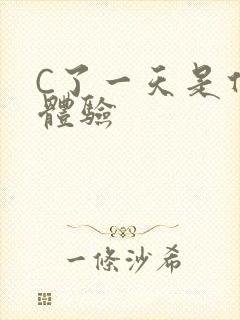 C了一天是
體驗
一條沙希